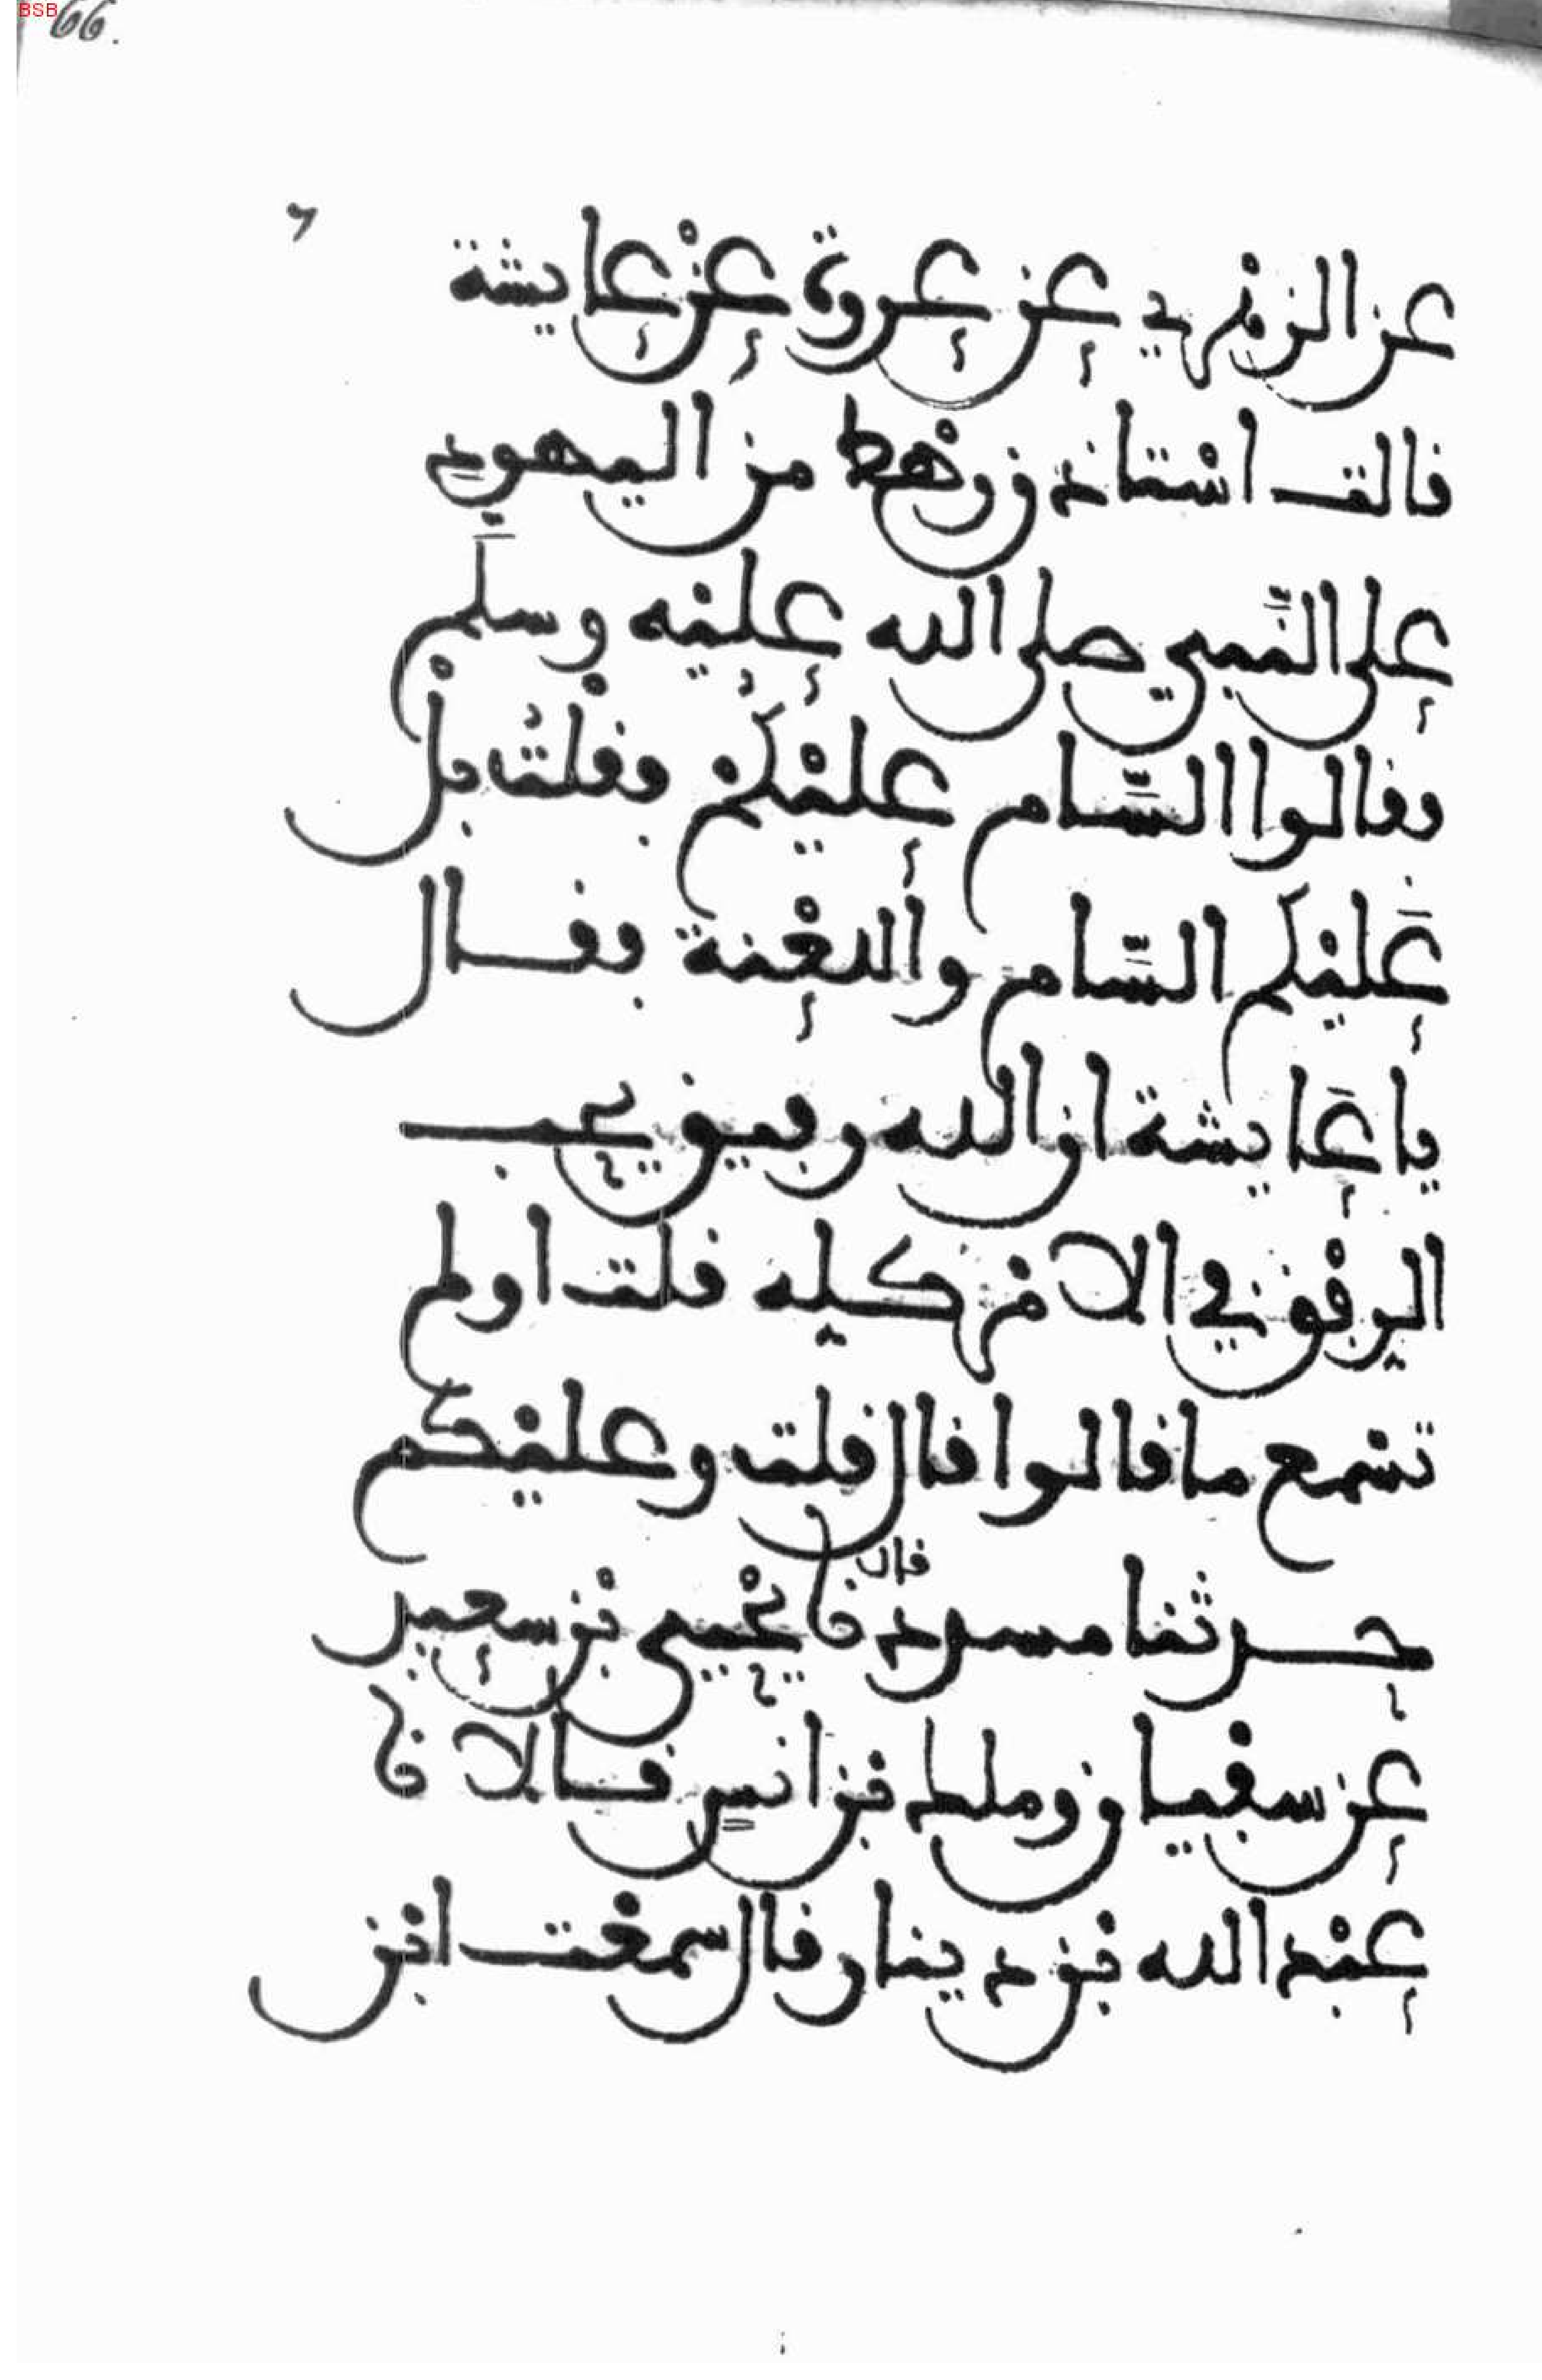 BSB
66.
عن الزهري عن عروة عن عايشة
قالت استاذن رهط من اليهود
على النّبي صلى الله عليه وسلّم
فقالوا السّام عليْكم فقلْتُ بلْ
عَليْكم السّام واللعْنة فقال
يا عَايشة ان الله رفيق يحب
الرفْق في الامْر كله قلت اولم
تسْمع ما قالوا قال قلت وعليْكم
حدثنا مسدد قال نا يحْيى بْن سعيد
عن سفْيان وملك بْن انسٍ قالا نا
عبْد الله بْن دينار قال سمعْت ابْن